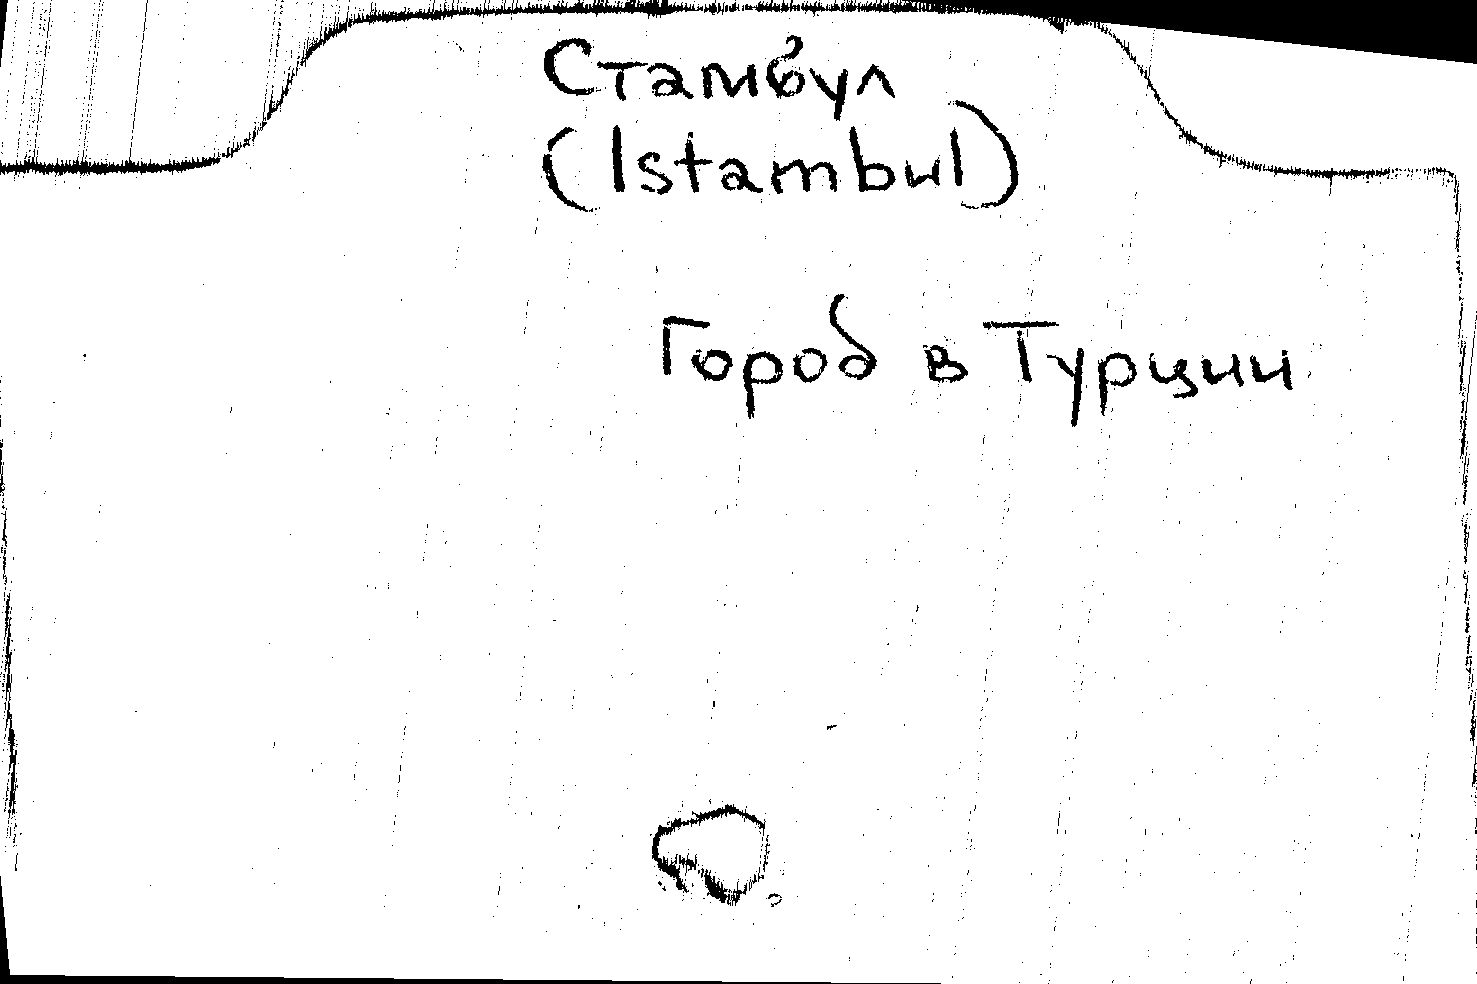 Стамбул
(Istambul)
Город в Турции